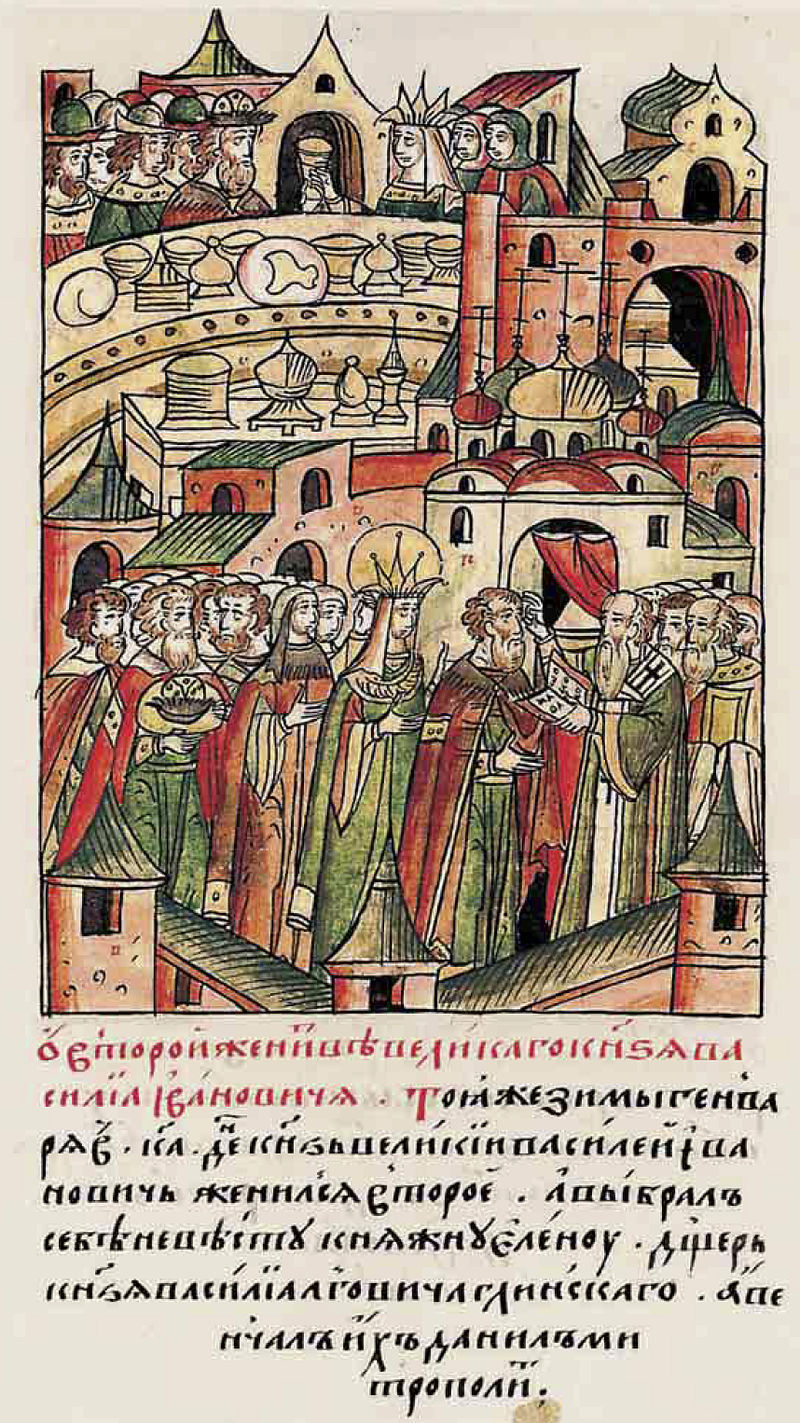 О второй женитвѣ великаго кн҃зѧ ва
силїа Ивановича . Тоѧ же зимы генва
рѧ в . к҃а . де҃н кн҃зь великїи василей Ива
новичь женилсѧ второе . а выбралъ
себѣ невѣсту кнѧжну Еленоу . дщерь
кн҃зѧ василїа лговича глинскаго . а ве
нчалъ ихъ данилъ ми
трополи .